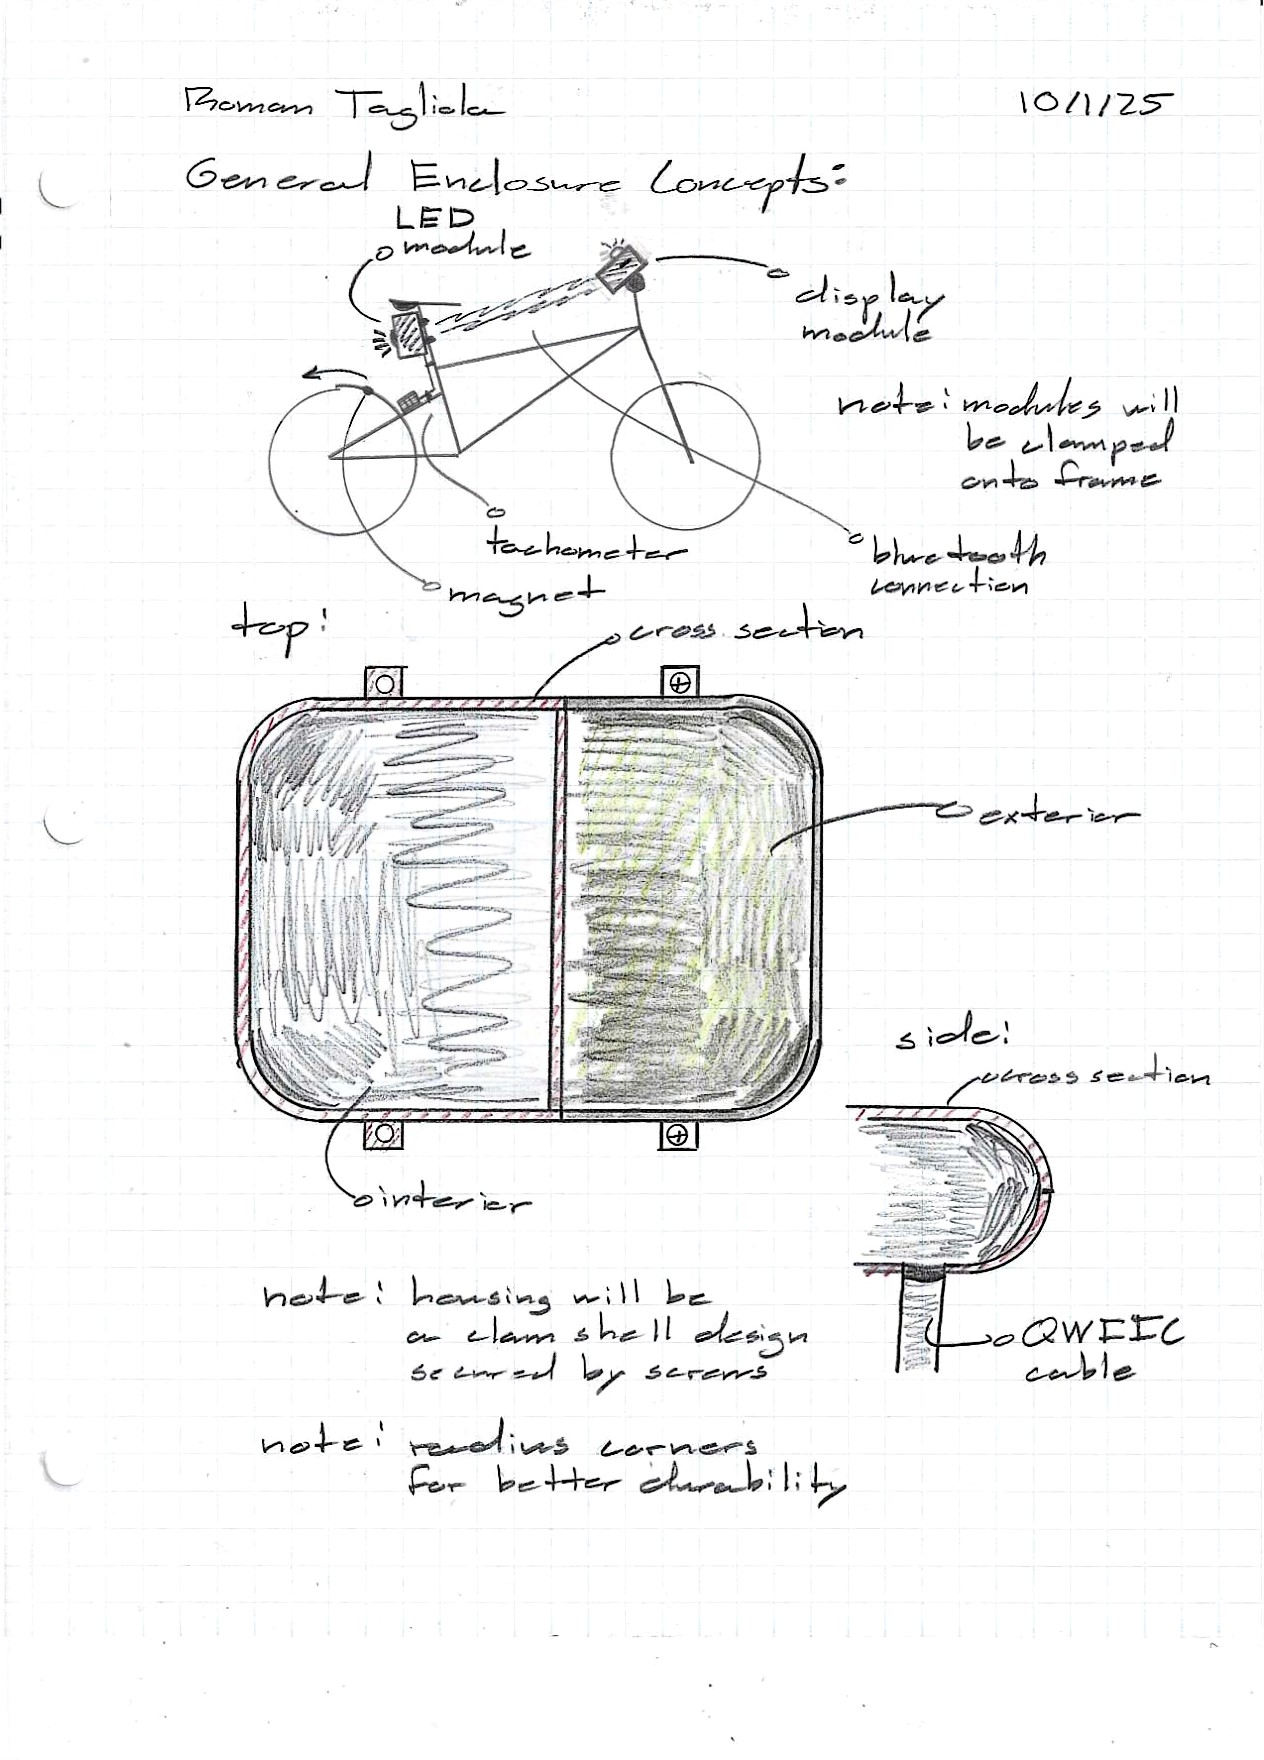 Roman Tagliola
10/1/25
General Enclosure Concepts:
LED
module
display
module
note: modules will
be clamped
onto frame
tachometer
bluetooth
connection
magnet
top:
cross section
exterior
side:
cross section
interior
note: housing will be
a clam shell design
secured by screws
QWIIC
cable
note: radius corners
for better durability